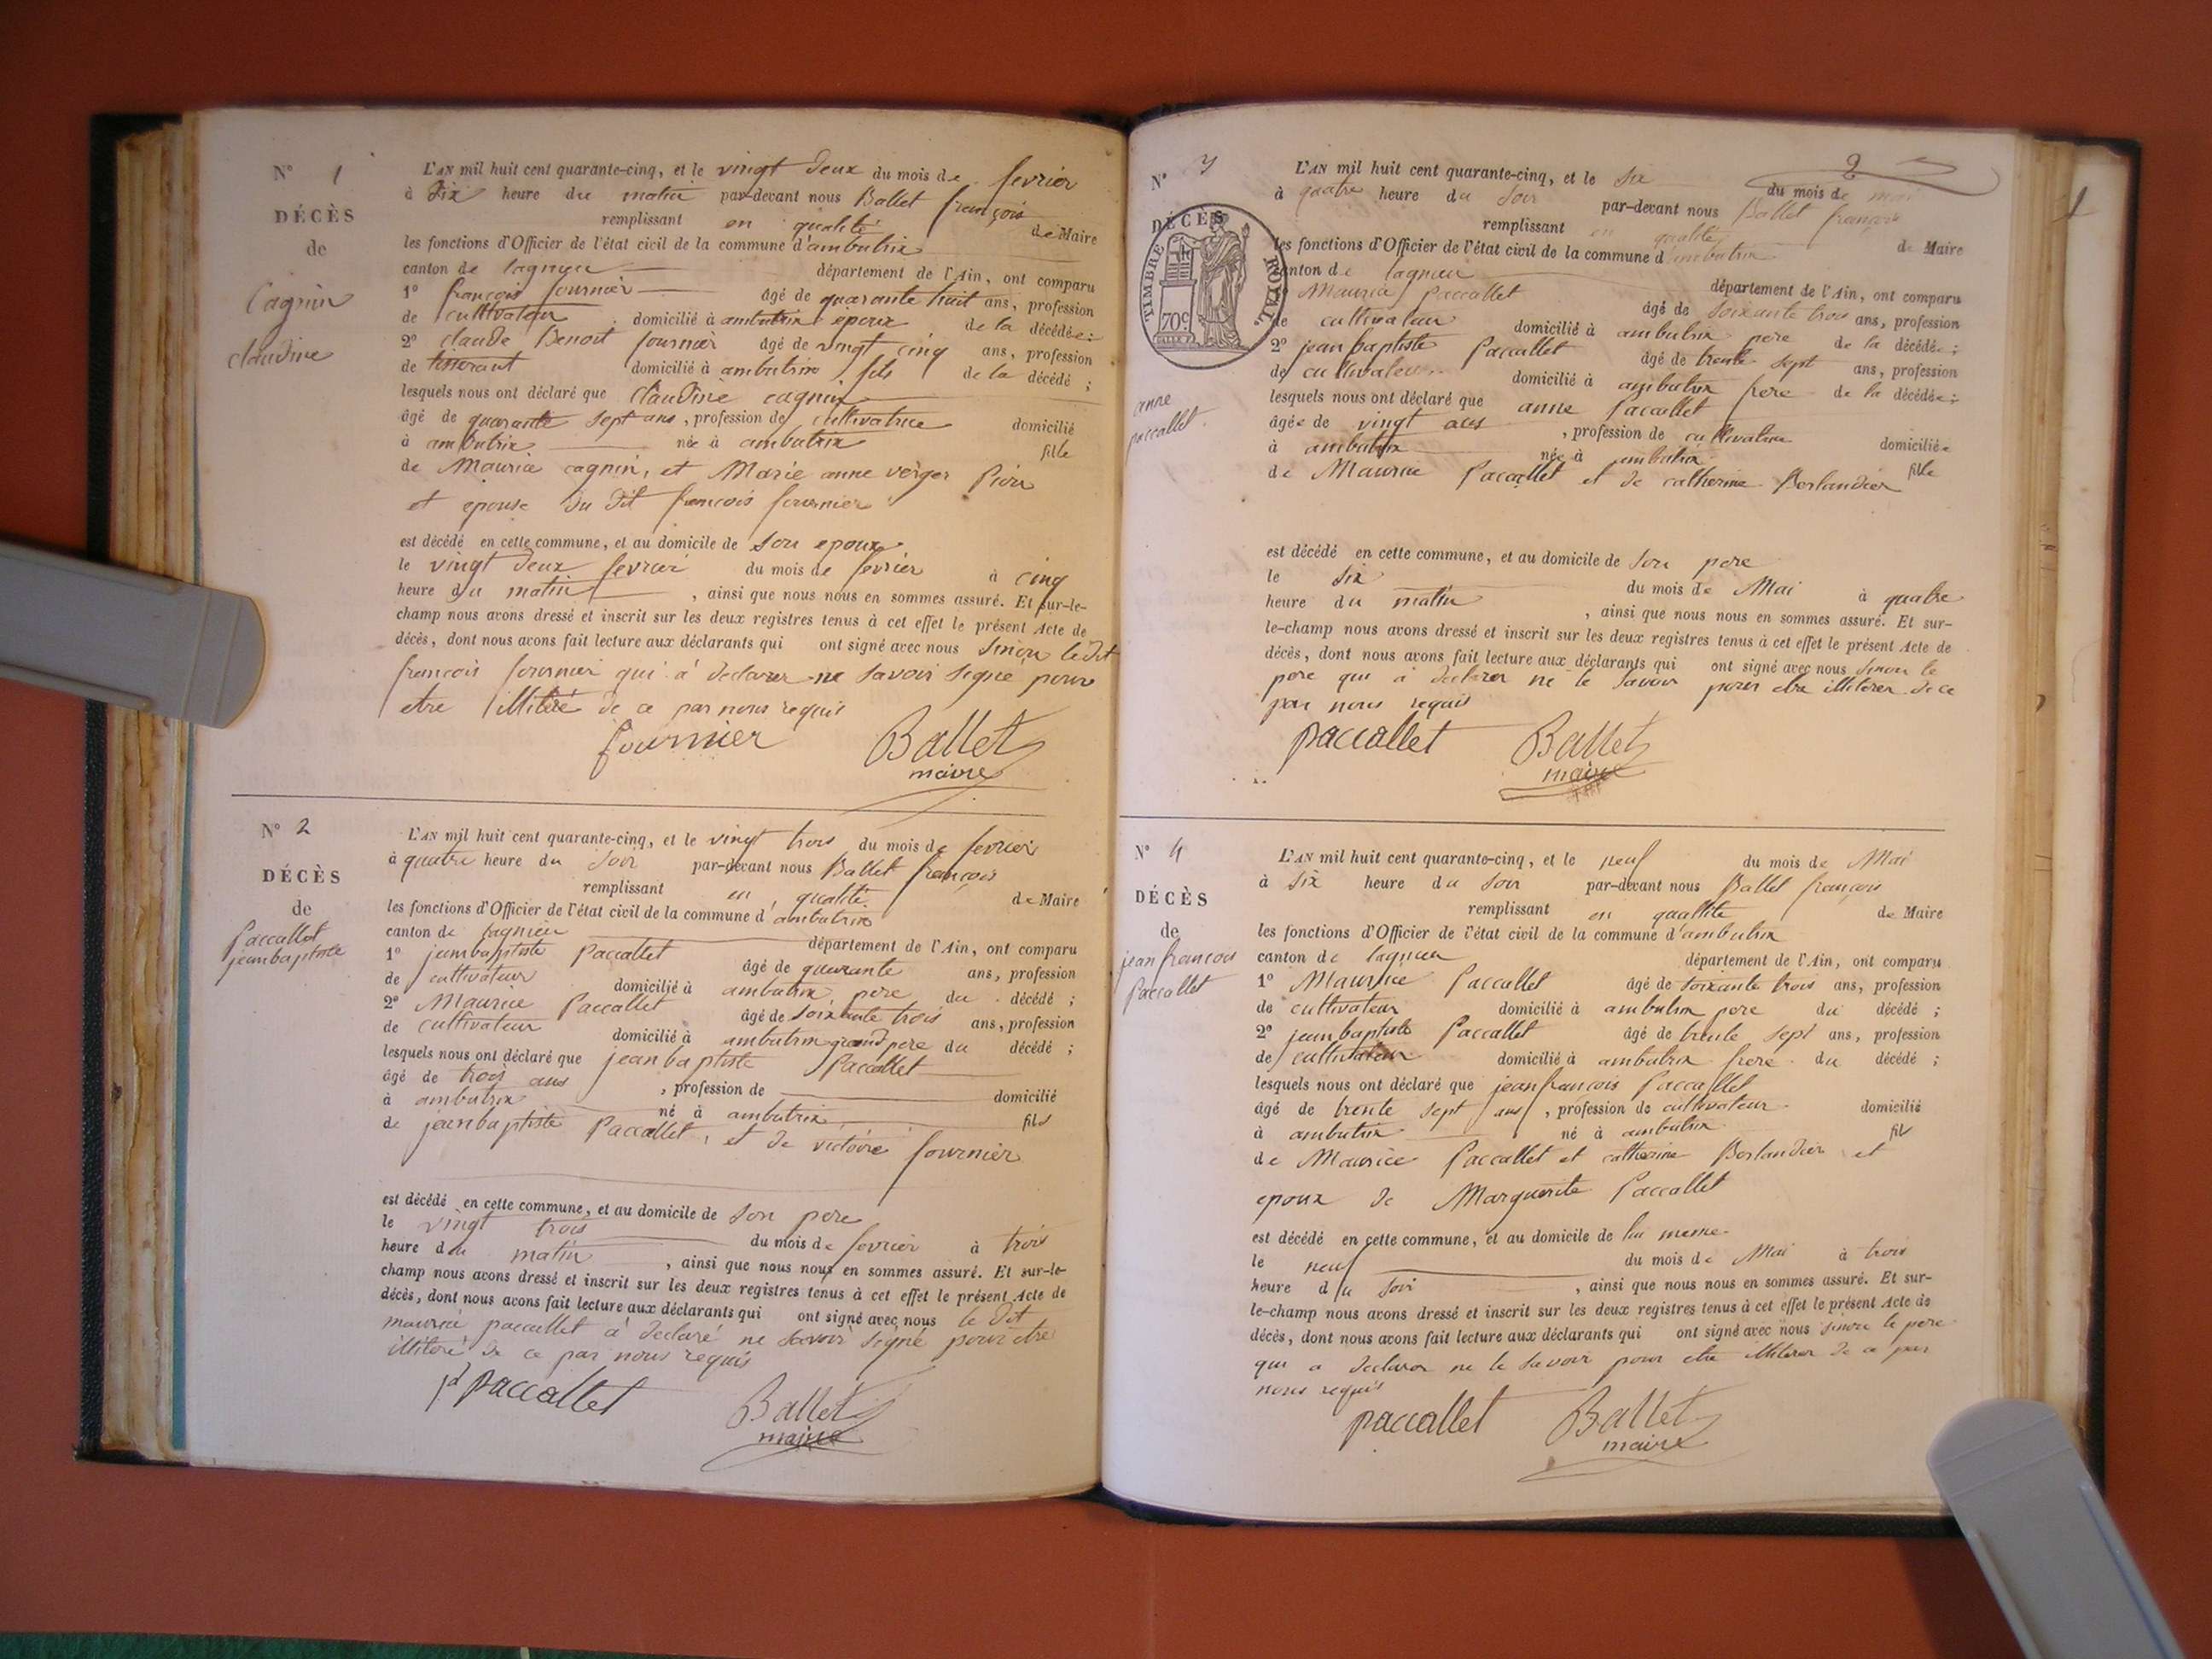 N° 1
DÉCÈS
de
Cagnin
claudine
L'AN mil huit cent quarante-cinq, et le vingt deux du mois de fevrier
à dix heure du matin par-devant nous Ballet françois
remplissant en qualité de Maire
les fonctions d'Officier de l'état civil de la commune d'ambutrix
canton de lagnieu département de l'Ain, ont comparu
1° françois fournier âgé de quarante huit ans, profession
de cultivateur domicilié à ambutrix epoux de la décédée;
2° claude Benoit fournier âgé de vingt cinq ans, profession
de tisserant domicilié à ambutrix fils de la décédé ;
lesquels nous ont déclaré que claudine cagnin
âgé de quarante sept ans, profession de cultivatrice domicilié
à ambutrix née à ambutrix fille
de Maurice cagnin, et Marie anne verger
et epouse du dit françois fournier
est décédé en cette commune, et au domicile de son epoux
le vingt deux fevrier du mois de fevrier à cinq
heure du matin , ainsi que nous nous en sommes assuré. Et sur-le-
champ nous avons dressé et inscrit sur les deux registres tenus à cet effet le présent Acte de
décès, dont nous avons fait lecture aux déclarants qui ont signé avec nous sinon le dit
françois fournier qui à declarer ne savoir signé pour
etre illitéré de ce par nous requis
fournier Ballet
maire
N° 2
DÉCÈS
de
Paccallet
jeanbaptiste
L'AN mil huit cent quarante-cinq, et le vingt trois du mois de fevrier
à quatre heure du soir par-devant nous Ballet françois
remplissant en qualité de Maire
les fonctions d'Officier de l'état civil de la commune d'ambutrix
canton de lagnieu département de l'Ain, ont comparu
1° jeanbaptiste Paccallet âgé de quarante ans, profession
de cultivateur domicilié à ambutrix pere du décédé ;
2° Maurice Paccallet âgé de soixante trois ans, profession
de cultivateur domicilié à ambutrix grand pere du décédé ;
lesquels nous ont déclaré que jeanbaptiste Paccallet
âgé de trois ans , profession de domicilié
à ambutrix né à ambutrix fils
de jeanbaptiste Paccallet, et de victoire fournier
est décédé en cette commune, et au domicile de son pere
le vingt trois du mois de fevrier à trois
heure du matin , ainsi que nous nous en sommes assuré. Et sur-le-
champ nous avons dressé et inscrit sur les deux registres tenus à cet effet le présent Acte de
décès, dont nous avons fait lecture aux déclarants qui ont signé avec nous le dit
maurice paccallet à declaré ne savoir signé pour etre
illitéré de ce par nous requis
paccallet Ballet
maire
2
N° 3
DÉCÈS
TIMBRE ROYAL.
70c
anne
paccallet
L'AN mil huit cent quarante-cinq, et le six du mois de mai
à quatre heure du soir par-devant nous Ballet françois
remplissant en qualité de Maire
les fonctions d'Officier de l'état civil de la commune d'ambutrix
canton de lagnieu département de l'Ain, ont comparu
Maurice Paccallet âgé de soixante trois ans, profession
de cultivateur domicilié à ambutrix pere de la décédée ;
2° jean baptiste Paccallet âgé de trente sept ans, profession
de cultivateur domicilié à ambutrix frere de la décédée ;
lesquels nous ont déclaré que anne Paccallet
âgée de vingt , profession de cultivatrice domiciliée
à ambutrix née à ambutrix fille
de Maurice Paccallet et de catherine Berlandier
est décédé en cette commune, et au domicile de son pere
le six du mois de Mai à quatre
heure du matin , ainsi que nous nous en sommes assuré. Et sur-
le-champ nous avons dressé et inscrit sur les deux registres tenus à cet effet le présent Acte de
décès, dont nous avons fait lecture aux déclarants qui ont signé avec nous sinon le
pere qui à declarer ne le savoir pour etre illiterer de ce
par nous requis
paccallet Ballet
maire
N° 4
DÉCÈS
de
jean francois
Paccallet
L'AN mil huit cent quarante-cinq, et le neuf du mois de Mai
à six heure du soir par-devant nous Ballet françois
remplissant en quallité de Maire
les fonctions d'Officier de l'état civil de la commune d'ambutrix
canton de lagnieu département de l'Ain, ont comparu
1° Maurice Paccallet âgé de soixante trois ans, profession
de cultivateur domicilié à ambutrix pere du décédé ;
2° jeanbaptiste Paccallet âgé de trente sept ans, profession
de cultivateur domicilié à ambutrix frere du décédé ;
lesquels nous ont déclaré que jeanfrancois Paccallet
âgé de trente sept ans , profession de cultivateur domicilié
à ambutrix né à ambutrix fils
de Maurice Paccallet et catherine Berlandier et
epoux de Marguerite Paccallet
est décédé en cette commune, et au domicile de lui meme
le neuf du mois de Mai à trois
heure du soir , ainsi que nous nous en sommes assuré. Et sur-
le-champ nous avons dressé et inscrit sur les deux registres tenus à cet effet le présent Acte de
décès, dont nous avons fait lecture aux déclarants qui ont signé avec nous sinon le pere
qui a declarer ne le savoir pour etre illiterer de ce par
nous requis
paccallet Ballet
maire